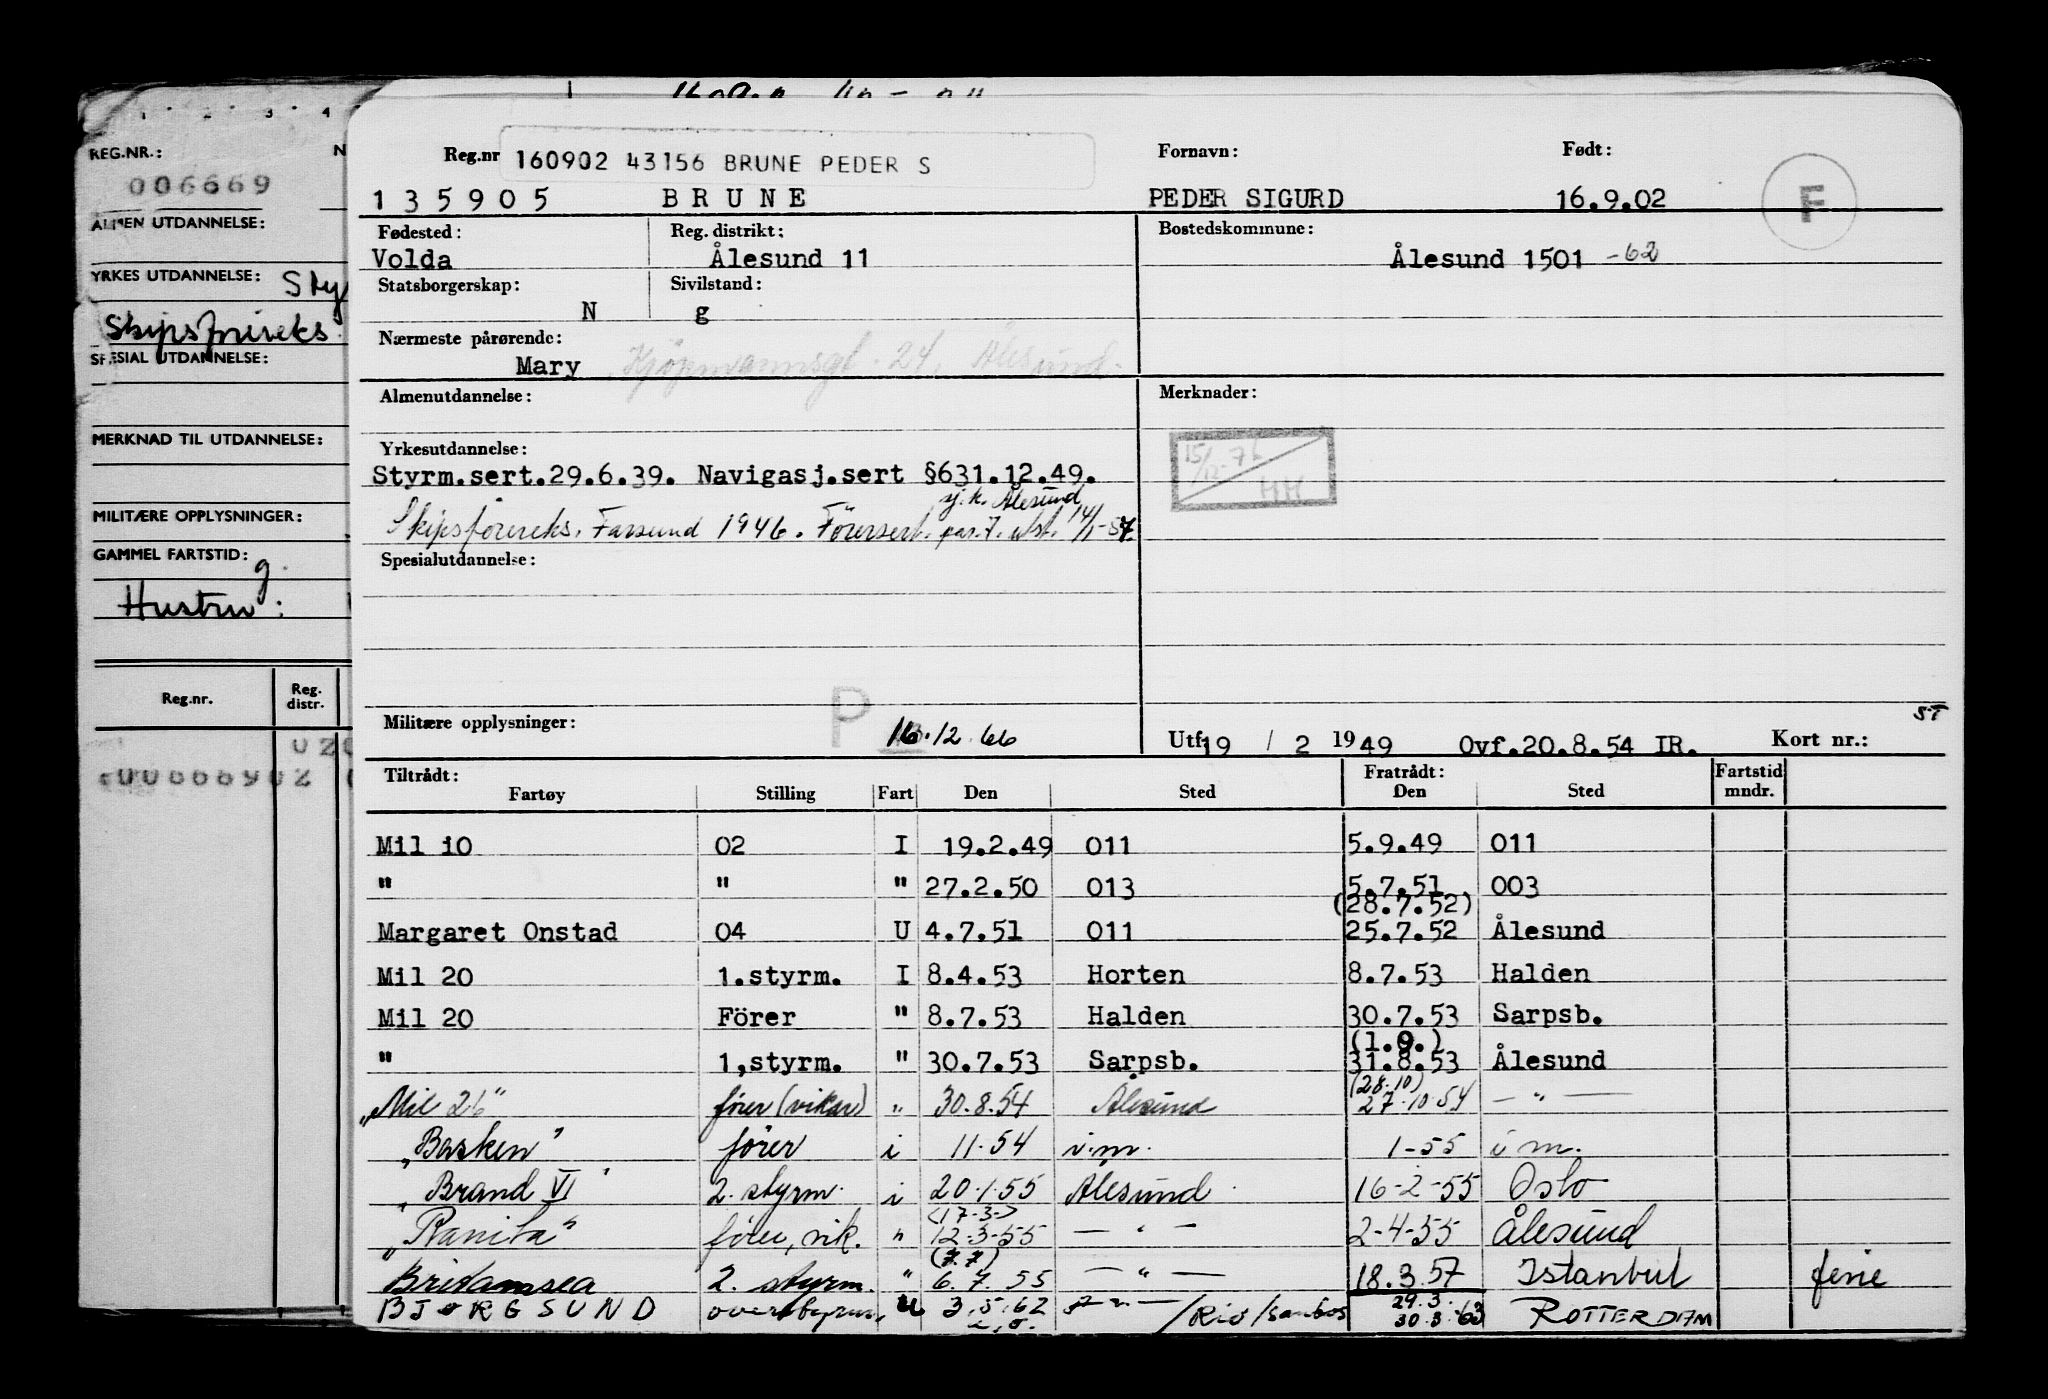 1 2 3 4
REG.NR.: N
006669
ALMEN UTDANNELSE:
YRKES UTDANNELSE: Sty
Skipsføreeks.
SPESIAL UTDANNELSE:
MERKNAD TIL UTDANNELSE:
MILITÆRE OPPLYSNINGER:
GAMMEL FARTSTID: g.
Hustru:
Reg.nr. Reg. distr.
Reg.nr 160902 43156 BRUNE PEDER S Fornavn: Født:
135905 BRUNE PEDER SIGURD 16.9.02 F
Fødested: Reg. distrikt: Bostedskommune:
Volda Ålesund 11 Ålesund 1501 -62
Statsborgerskap: Sivilstand:
N g
Nærmeste pårørende:
Mary Kjøpmannsgt. 24, Ålesund.
Almenutdannelse: Merknader:
Yrkesutdannelse: 15/12-76 HH
Styrm.sert.29.6.39. Navigasj.sert §631.12.49.
sj.k. Ålesund
Skipsførereks. Farsund 1946. Förersert. par.7. utst. 14/1-57.
Spesialutdannelse:
P ST
Militære opplysninger: 16.12.66 Utf. 19 / 2 1949 Ovf.20.8.54 IR. Kort nr.:
Tiltrådt: Fratrådt: Fartstid
Fartøy Stilling Fart Den Sted Den Sted mndr.
Mil 10 02 I 19.2.49 011 5.9.49 011
" " " 27.2.50 013 5.7.51 003
(28.7.52)
Margaret Onstad 04 U 4.7.51 011 25.7.52 Ålesund
Mil 20 1.styrm. I 8.4.53 Horten 8.7.53 Halden
Mil 20 Förer " 8.7.53 Halden 30.7.53 Sarpsb.
(1.9.)
" 1,styrm. " 30.7.53 Sarpsb. 31.8.53 Ålesund
(28.10)
„Mil 26" fører (vikar) " 30.8.54 Ålesund 27.10.54 — " —
„Basken" förer i 11.54 i.m. 1-55 i m.
„Brand VI" 2. styrm. i 20.1.55 Ålesund 16-2-55 Oslo
(17-3-)
„Ranita" fører, vik. " 12-3-55 — " — 2-4-55 Ålesund
(7.7)
Bridamsea 2. styrm. " 6.7.55 — " — 18.3.57 Istanbul ferie
29.3.
BJØRGSUND overstyrm. U 3.5.62 — " — /Rio/Santos 30.3.63 ROTTERDAM